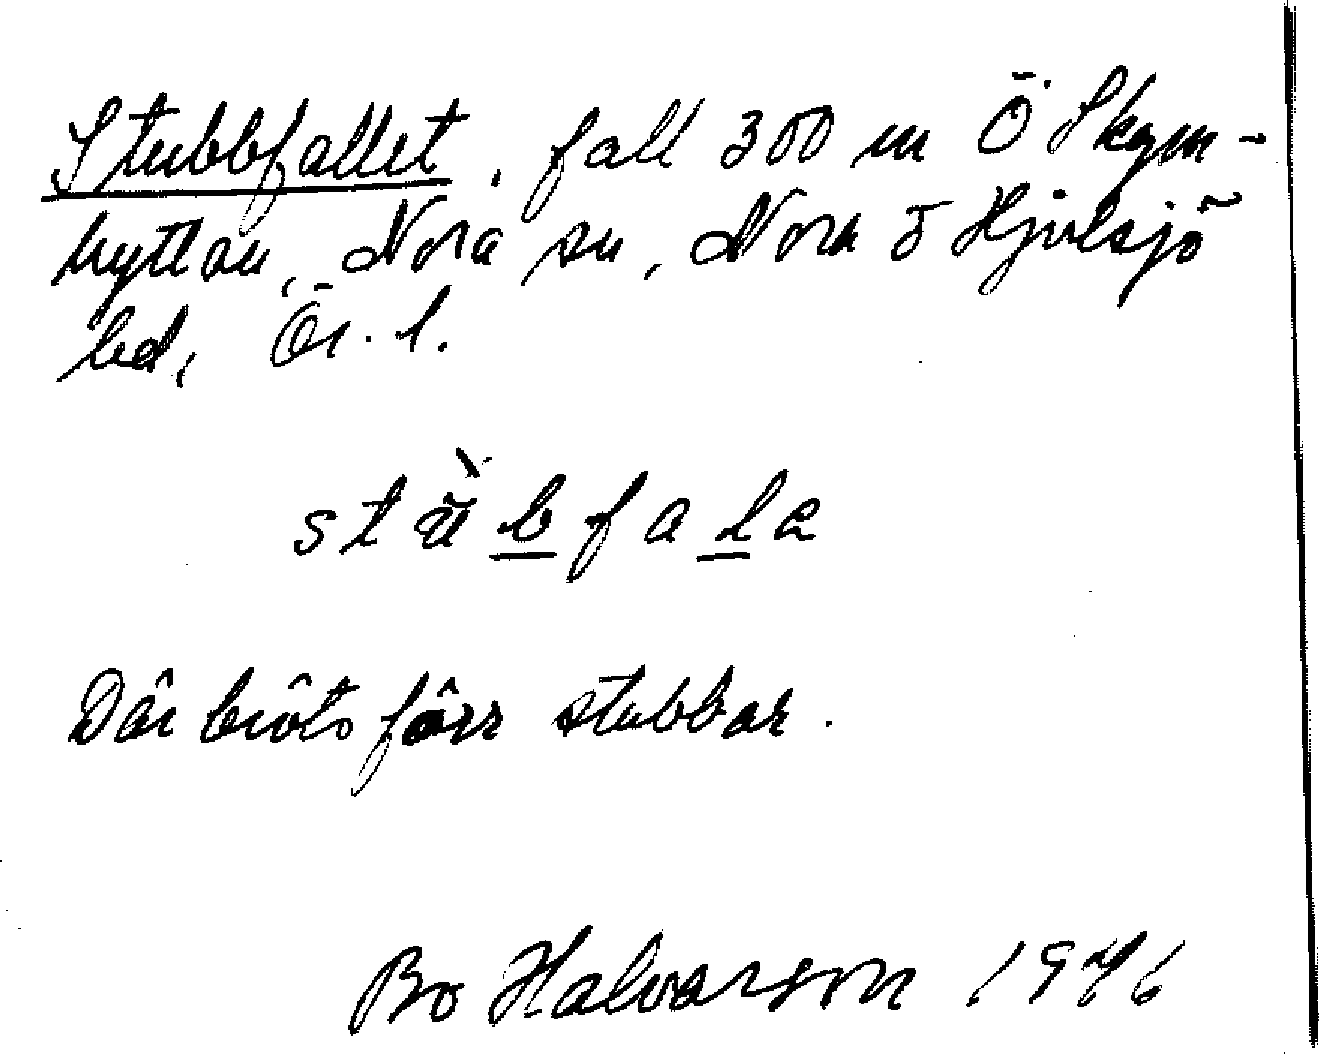 Stubbfallet, fall 300 m Ö Skym-
hyttan, Nora sn, Nora o Hjulsjö
bd, Ör. l.
Där bröts förr stubbar.
Bo Halvarson 1976